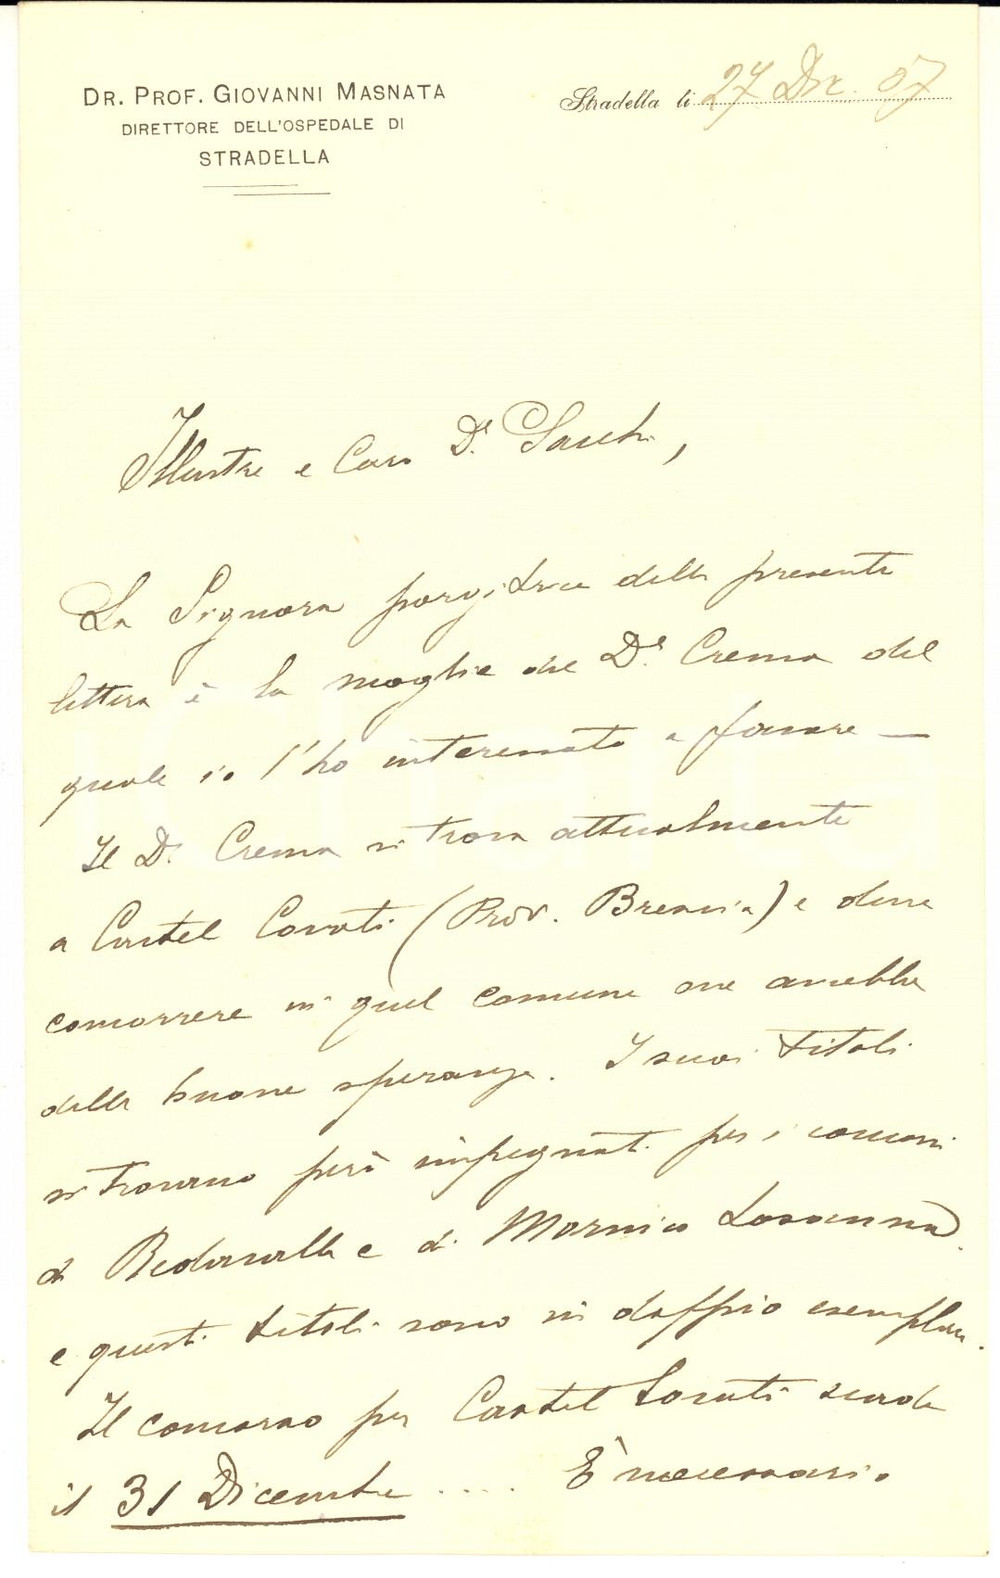 DR. PROF. GIOVANNI MASNATA
DIRETTORE DELL'OSPEDALE DI
STRADELLA
Stradella li 27 Dic. 07
Illustre e Caro Dr. Sacchi,
La Signora porgitrice della presente
lettera è la moglie del Dr. Crema del
quale io l'ho interessato a favore —
Il Dr. Crema si trova attualmente
a Castel Covati (Prov. Brescia) e deve
concorrere in quel comune ove avrebbe
delle buone speranze. I suoi titoli
si trovano però impegnati per i concorsi
di Redavalle e di Mornico Losanna
e questi titoli sono in doppio esemplare.
Il concorso per Castel Covati scade
il 31 Dicembre .... È necessario